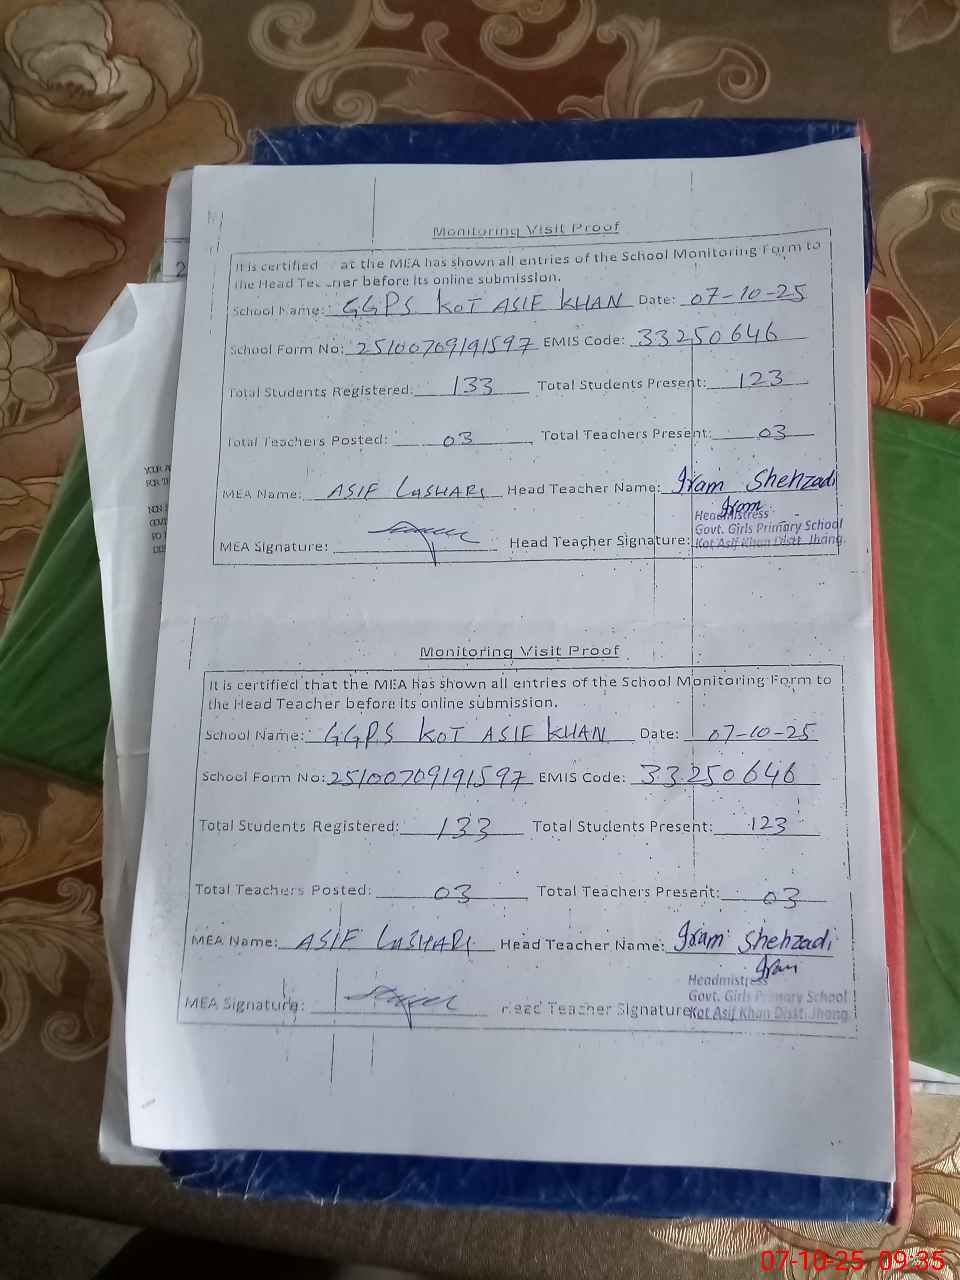 2
Monitoring Visit Proof
It is certified at the MEA has shown all entries of the School Monitoring Form to
the Head Te ner before its online submission.
School Name: GGPS KOT ASIF KHAN Date: 07-10-25
School Form No: 25100709191597 EMIS Code: 33250646
Total Students Registered: 133 Total Students Present: 123
Total Teachers Posted: 03 Total Teachers Present: 03
MEA Name: ASIF LASHARI Head Teacher Name: Iram Shehzadi
Iram
Headmistress
Govt. Girls Primary School
MEA Signature: Head Teacher Signature: Kot Asif Khan Distt. Jhang.
Monitoring Visit Proof
It is certified that the MEA has shown all entries of the School Monitoring Form to
the Head Teacher before its online submission.
School Name: GGPS KOT ASIF KHAN Date: 07-10-25
School Form No: 25100709191597 EMIS Code: 33250646
Total Students Registered: 133 Total Students Present: 123
Total Teachers Posted: 03 Total Teachers Present: 03
MEA Name: ASIF LASHARI Head Teacher Name: Iram Shehzadi
Iram
Headmistress
Govt. Girls Primary School
MEA Signature: Head Teacher Signature: Kot Asif Khan Distt. Jhang.
07-10-25 09:35